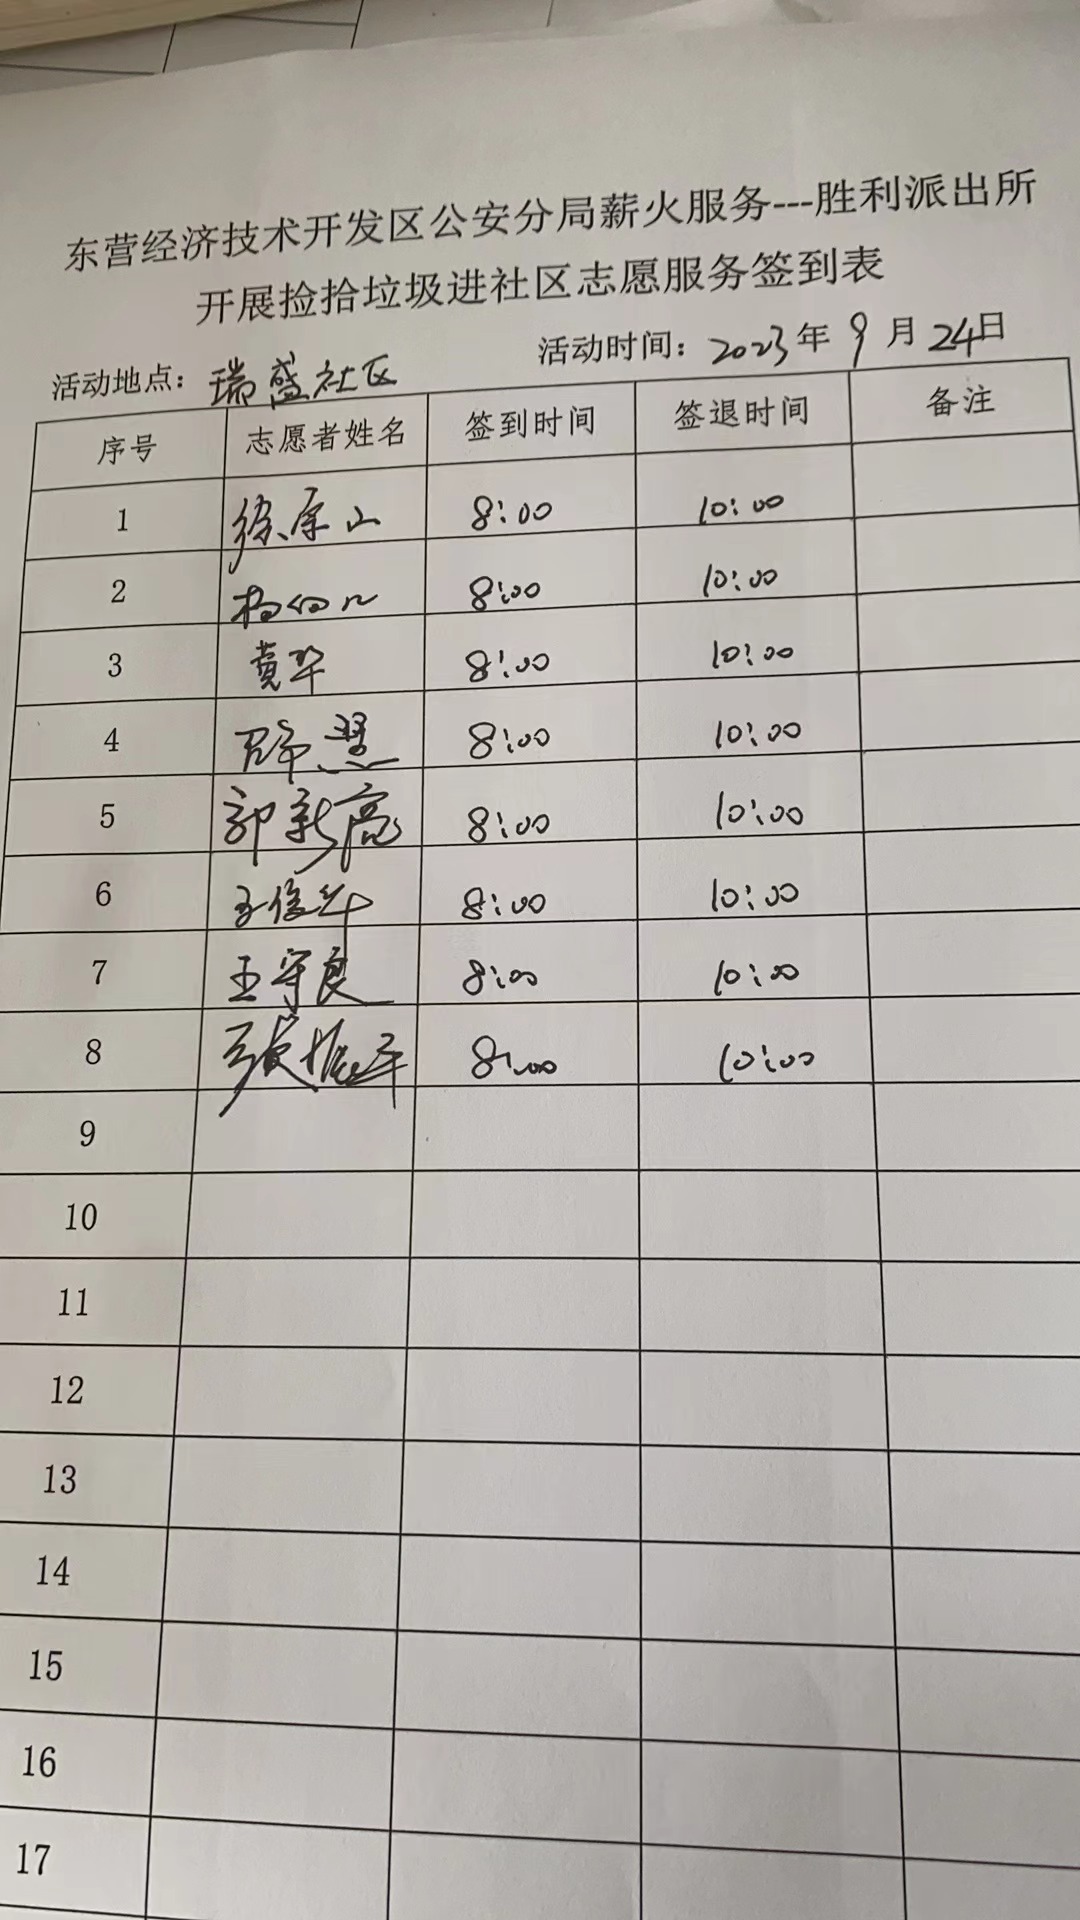 东营经济技术开发区公安分局薪火服务---胜利派出所
开展捡拾垃圾进社区志愿服务签到表
活动地点：瑞盛社区 活动时间：2023年9月24日
序号 志愿者姓名 签到时间 签退时间 备注
1 徐原山 8:00 10:00
2 8:00 10:00
3 黄华 8:00 10:00
4 8:00 10:00
5 郭新亮 8:00 10:00
6 王俊华 8:00 10:00
7 王守良 8:00 10:00
8 8:00 10:00
9
10
11
12
13
14
15
16
17